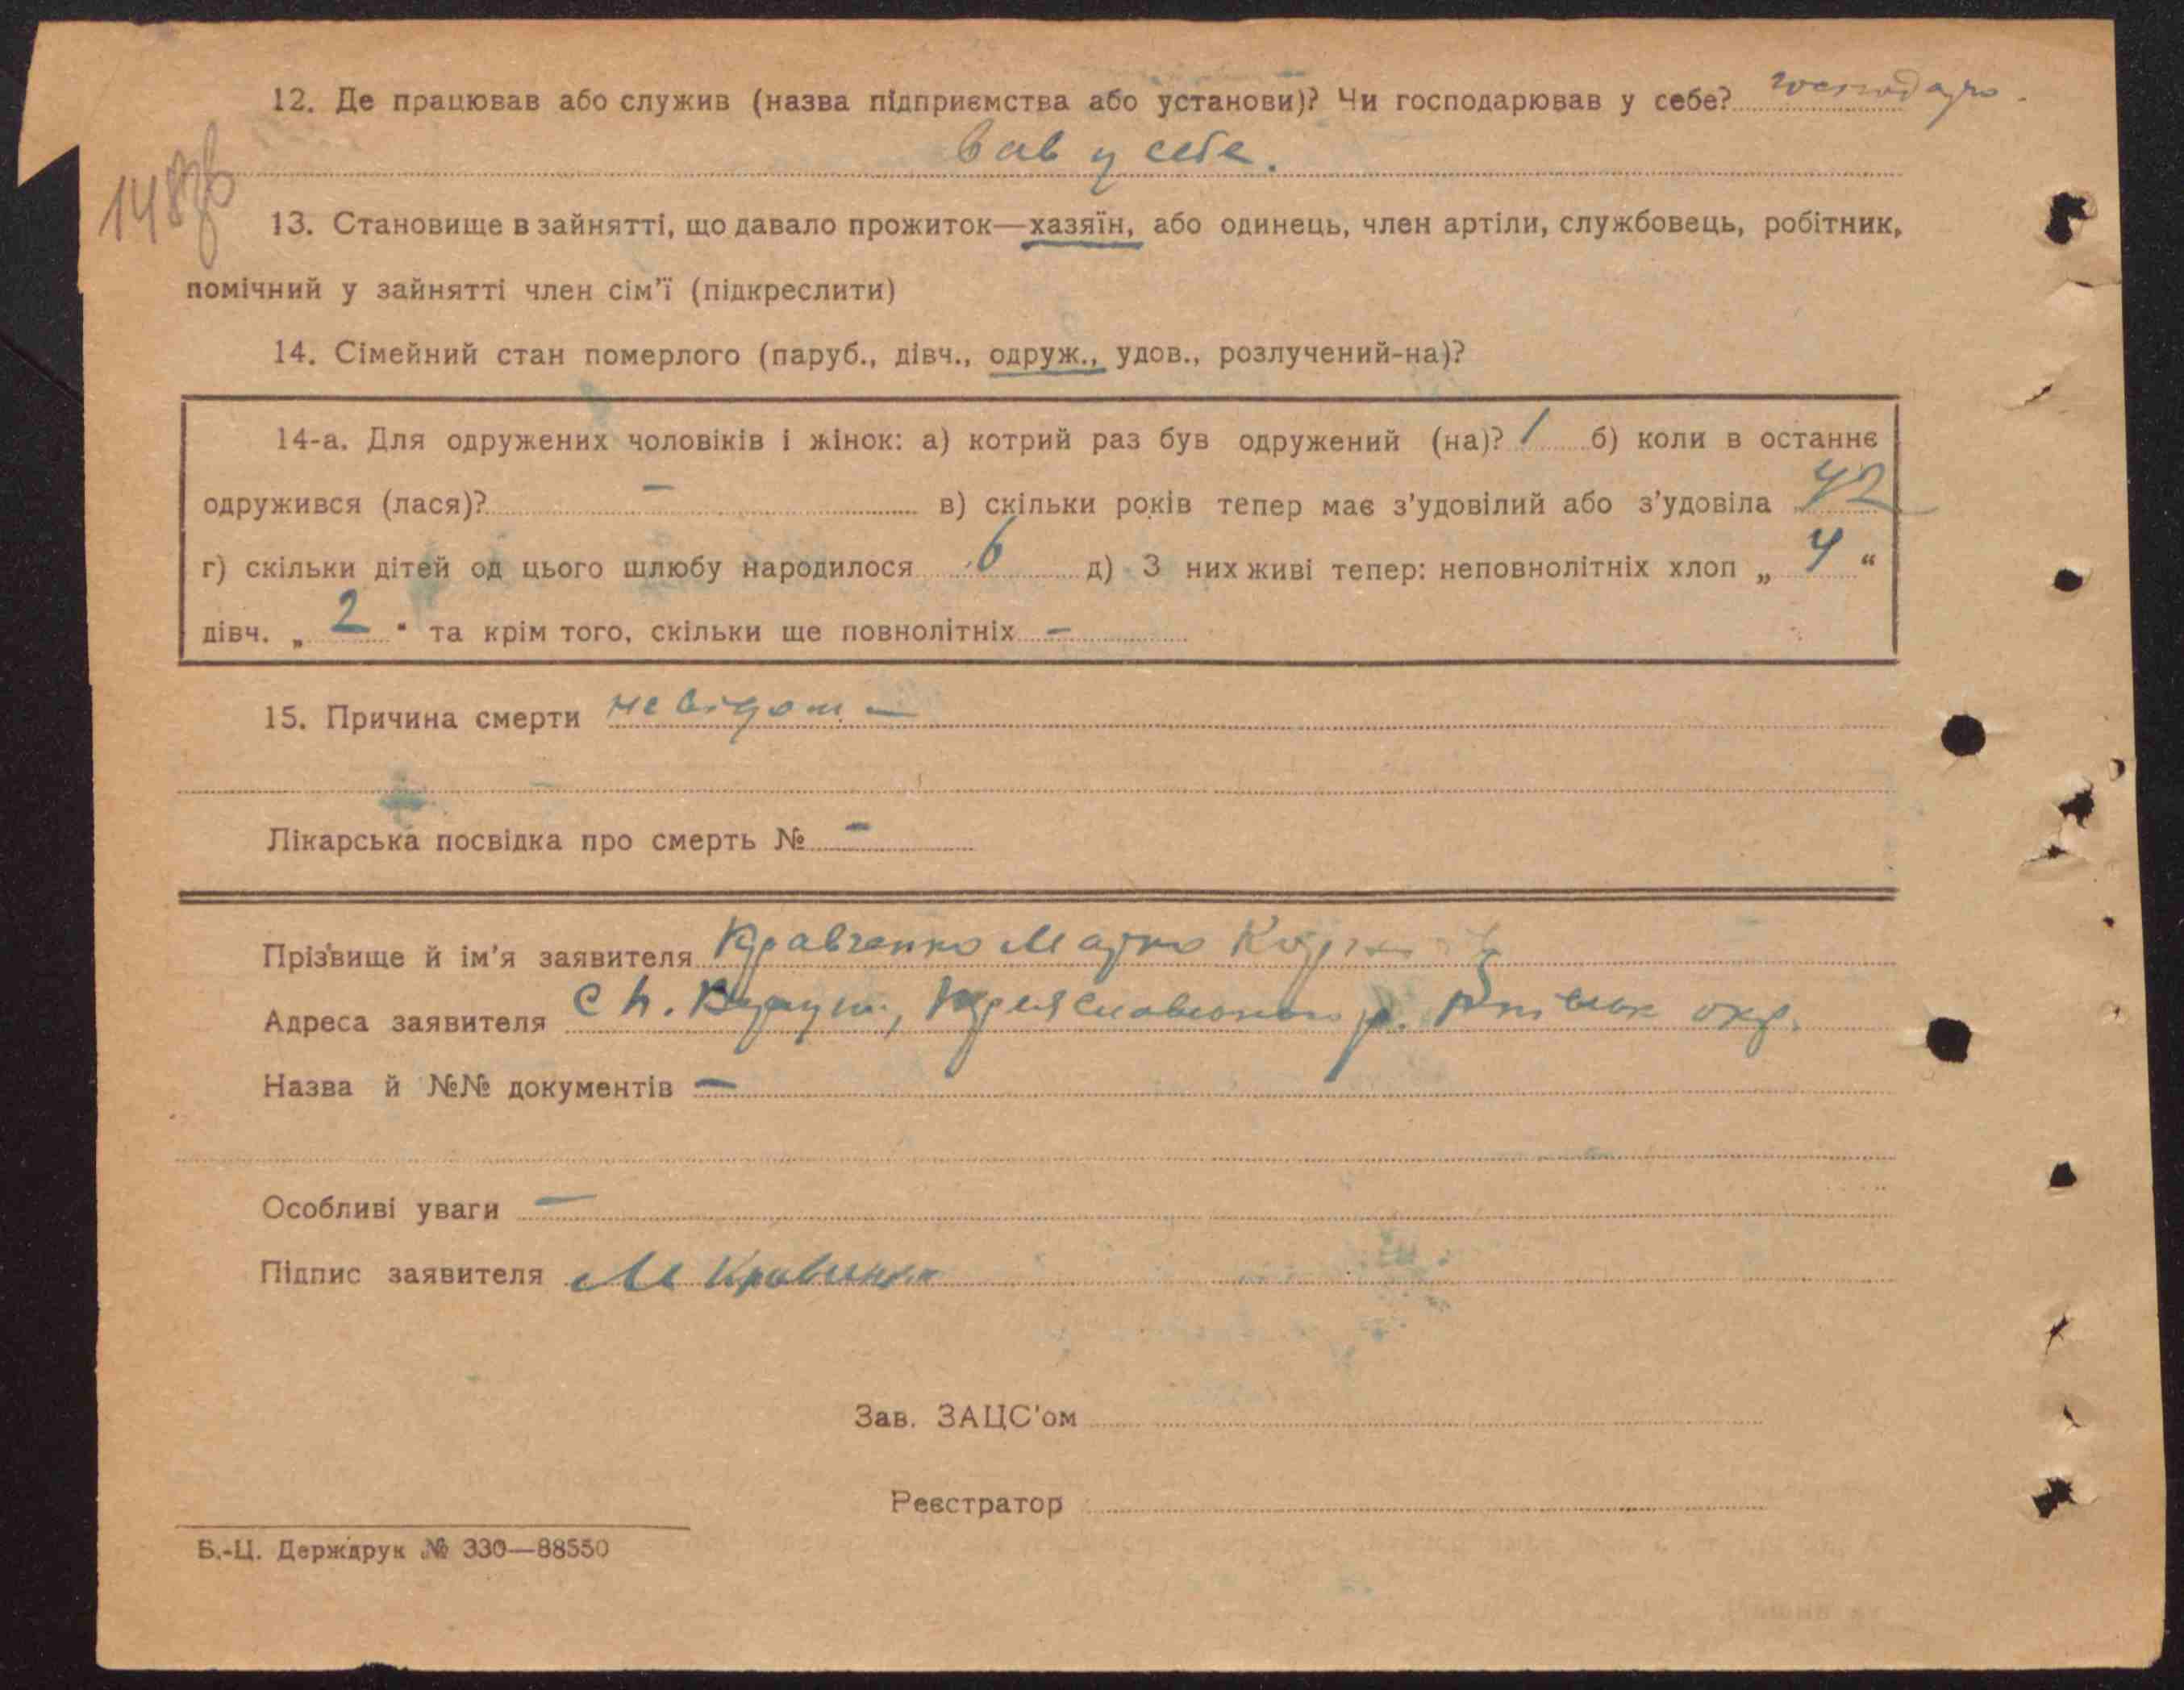 12. Де працював або служив (назва підприємства або установи)? Чи господарював у себе? господарю-
вав у себе.
148зв
13. Становище в зайнятті, що давало прожиток—хазяїн, або одинець, член артіли, службовець, робітник,
помічний у зайнятті член сім'ї (підкреслити)
14. Сімейний стан померлого (паруб., дівч., одруж., удов., розлучений-на)?
14-а. Для одружених чоловіків і жінок: а) котрий раз був одружений (на)? 1 б) коли в останнє
одружився (лася)? — в) скільки років тепер має з'удовілий або з'удовіла 42
г) скільки дітей од цього шлюбу народилося 6 д) З них живі тепер: неповнолітніх хлоп „ 4 “
дівч. „ 2 “ та крім того, скільки ще повнолітніх —
15. Причина смерти невідом
Лікарська посвідка про смерть № —
Прізвище й ім'я заявителя Кравченко Марко
Адреса заявителя с окр.
Назва й №№ документів —
Особливі уваги —
Підпис заявителя М Кравченко
Зав. ЗАЦС'ом
Реєстратор
Б.-Ц. Держдрук № 330—88550